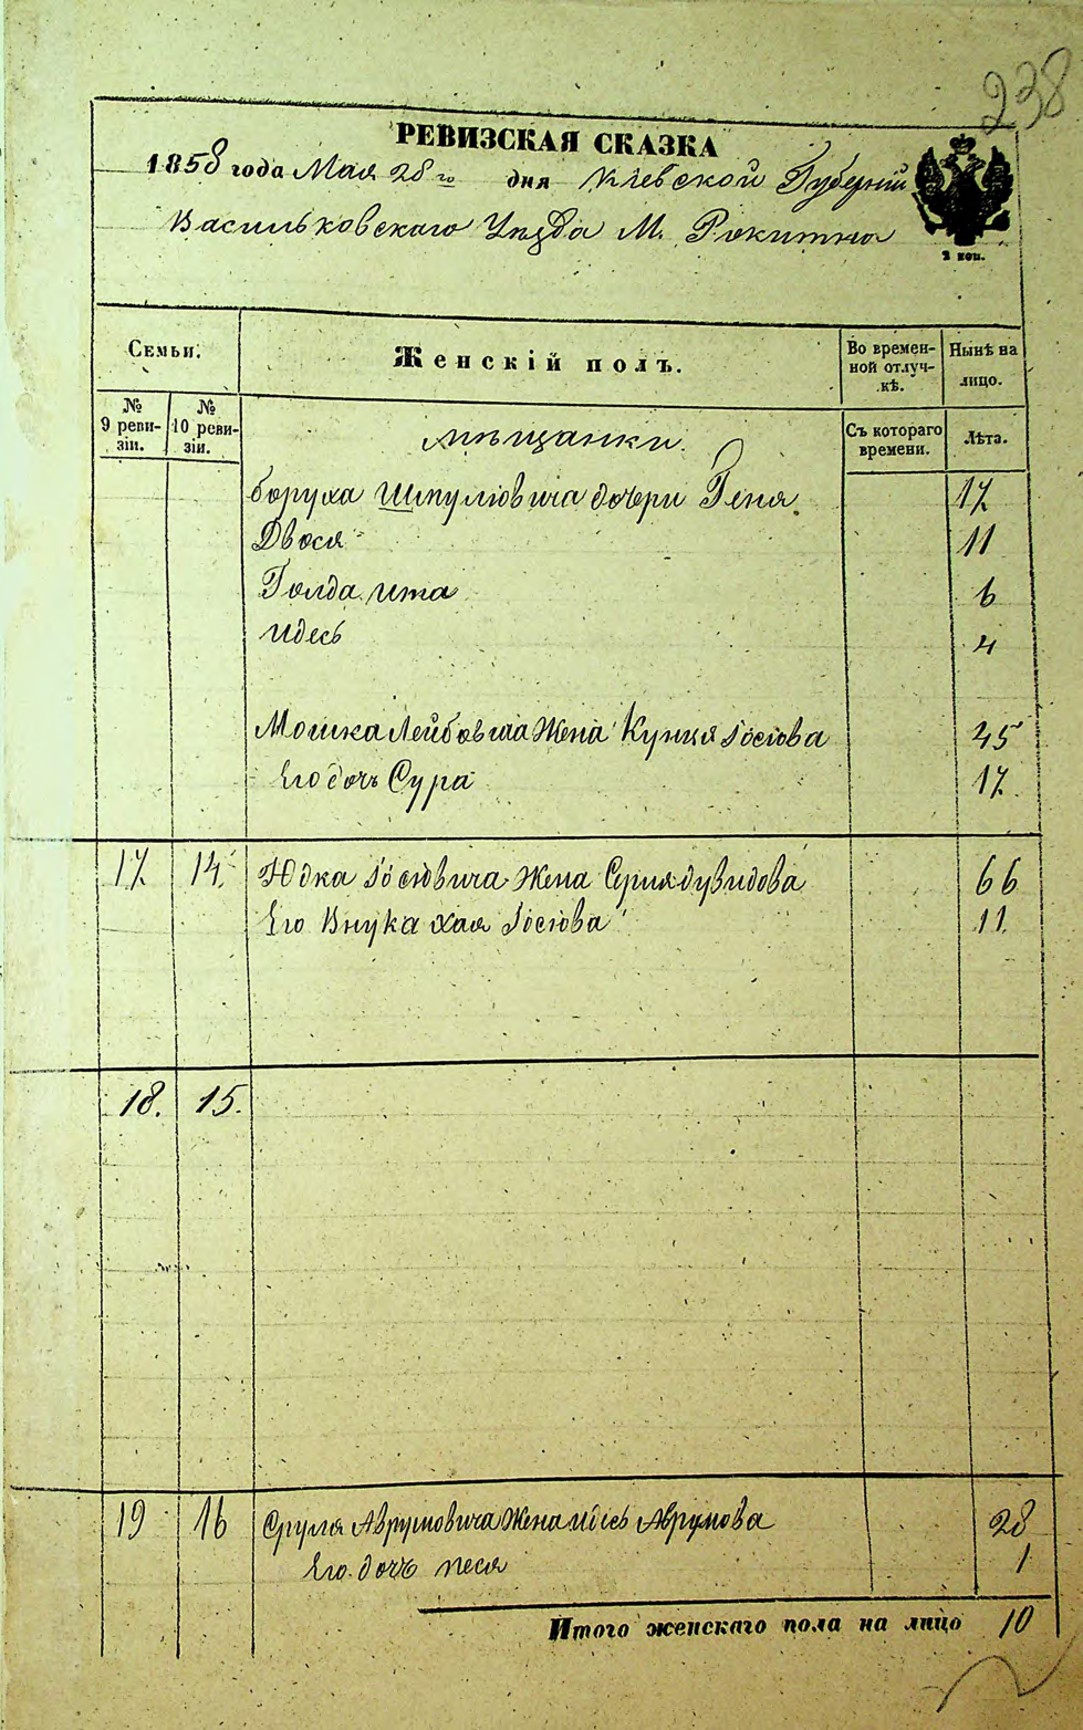 238
РЕВИЗСКАЯ СКАЗКА
1858 года Мая 28го дня Кіевской Губерніи
Васильковскаго Уѣзда М. Рокитна
2 коп.
Семьи.
Женскій полъ.
Во времен-
ной отлуч-
кѣ.
Нынѣ на
лицо.
№
9 реви-
зіи.
№
10 реви-
зіи.
мѣщанки.
Съ котораго
времени.
Лѣта.
боруха Шмулiовича дочери Геня 17
Двося 11
Голда ита 6
идесь 4
Мошка Лейбовича Жена Іосіова 45
Его дочь Сура 17
17 14 Юдка Іосіовича Жена дувидова 66
Его Внука хая Іосіова 11
18. 15.
19 16 Сруля Аврумовича Жена идесь Аврумова 28
Его дочь песя 1
Итого женскаго пола на лицо 10